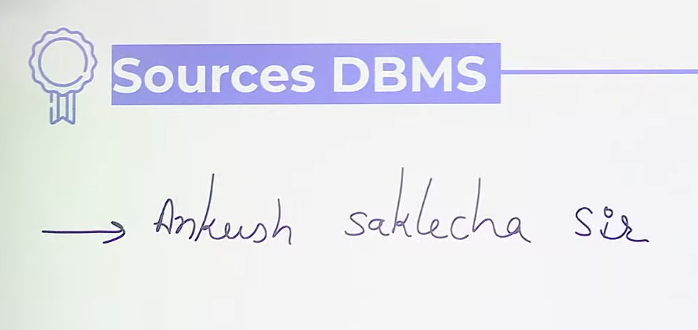 Sources DBMS
→ Ankush saklecha Sir